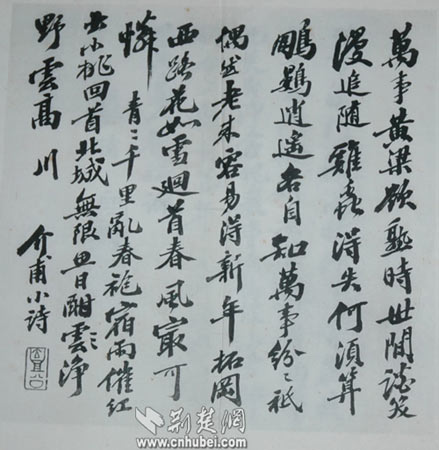 萬事黃粱欲熟時世間談笑
漫追隨雞蟲得失何須算
鵬鷃逍遙各自知萬事紛〻祇
偶然老來容易得新年柘岡
西路花如雪迴首春風最可
憐 青〻千里亂春袍宿雨催紅
出小桃回首北城無限思日酣雲淨
野雲高川 介甫小詩
荆楚網
www.cnhubei.com